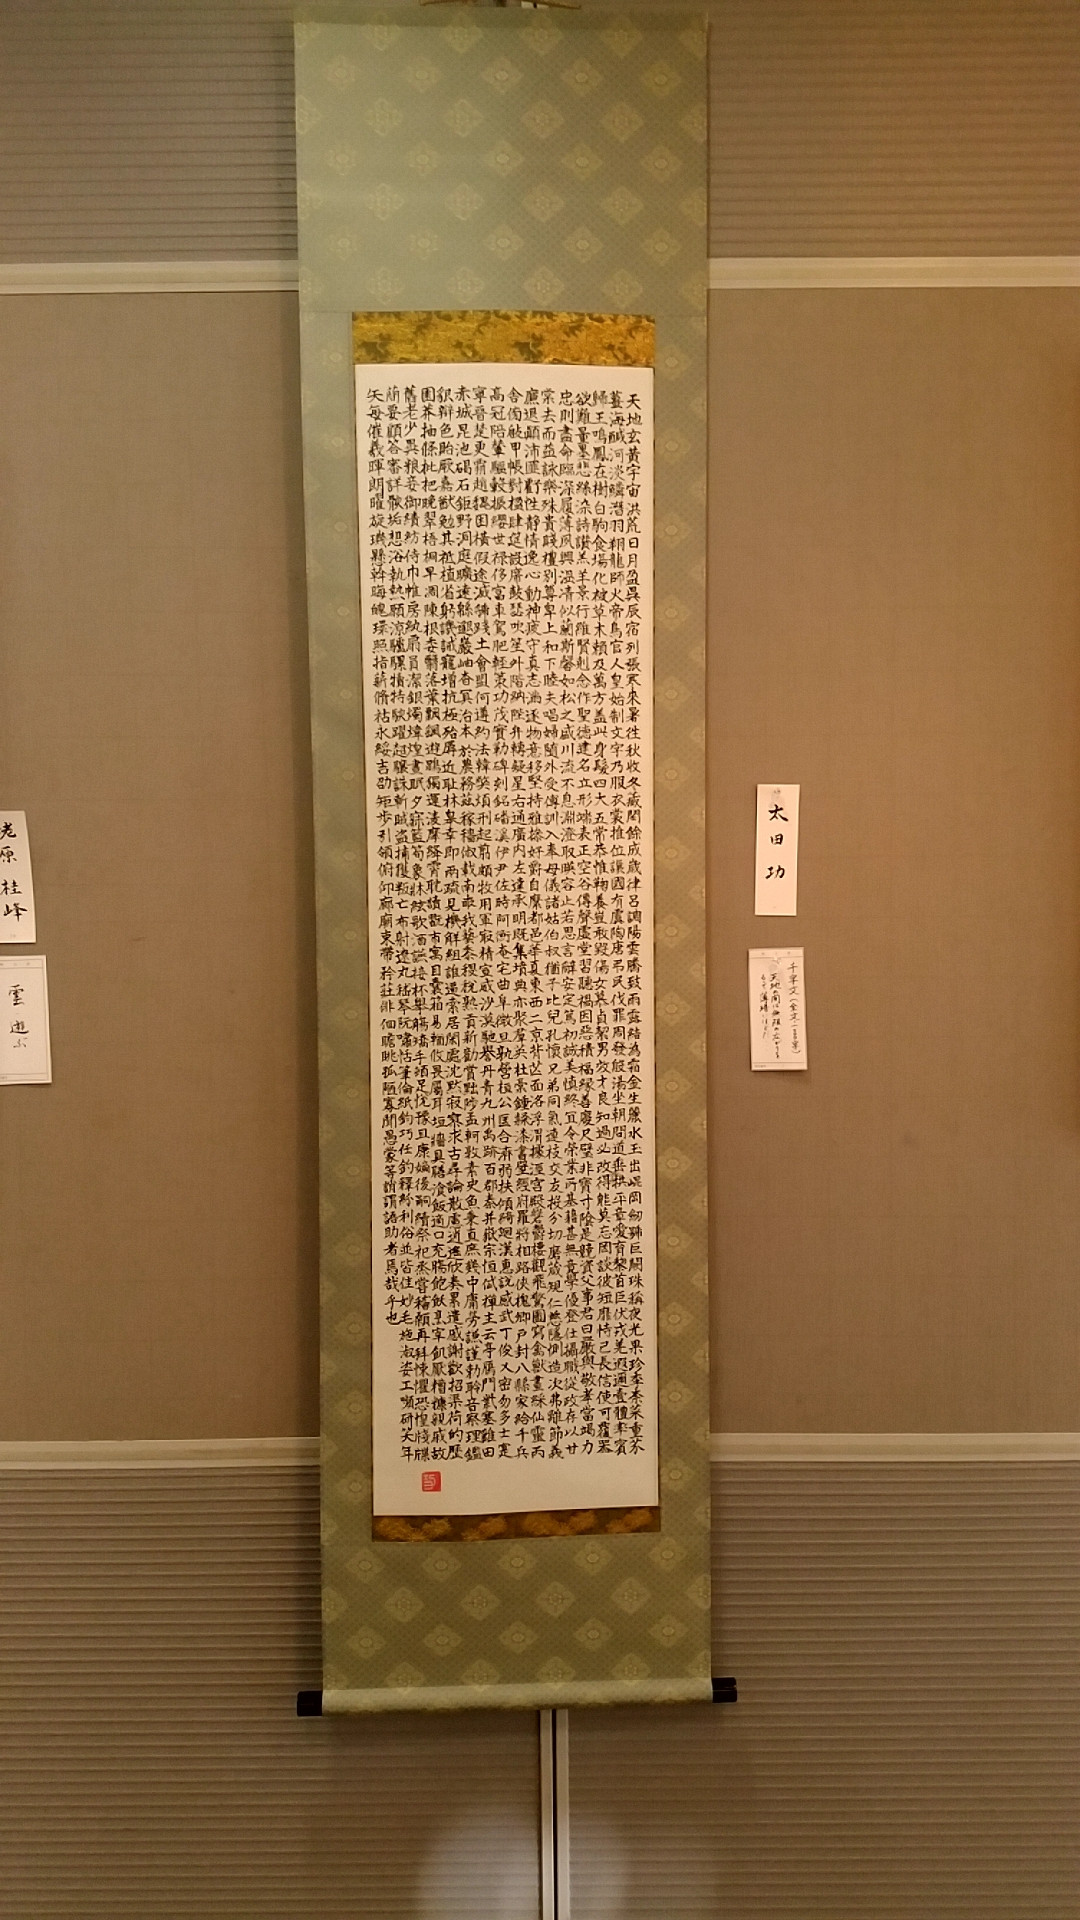 天地玄黃宇宙洪荒日月盈昃辰宿列張寒來暑往秋收冬藏閏餘成歲律呂調陽雲騰致雨露結為霜金生麗水玉出崐岡劒號巨闕珠稱夜光果珍李柰菜重芥
薑海鹹河淡鱗潛羽翔龍師火帝鳥官人皇始制文字乃服衣裳推位讓國有虞陶唐弔民伐罪周發殷湯坐朝問道垂拱平章愛育黎首臣伏戎羌遐邇壹體率賓
歸王鳴鳳在樹白駒食場化被草木賴及萬方蓋此身髮四大五常恭惟鞠養豈敢毀傷女慕貞絜男效才良知過必改得能莫忘罔談彼短靡恃己長信使可覆器
欲難量墨悲絲染詩讚羔羊景行維賢剋念作聖德建名立形端表正空谷傳聲虛堂習聽禍因惡積福緣善慶尺璧非寶寸陰是競資父事君曰嚴與敬孝當竭力
忠則盡命臨深履薄夙興溫凊似蘭斯馨如松之盛川流不息淵澄取映容止若思言辭安定篤初誠美慎終宜令榮業所基籍甚無竟學優登仕攝職從政存以甘
棠去而益詠樂殊貴賤禮別尊卑上和下睦夫唱婦隨外受傅訓入奉母儀諸姑伯叔猶子比兒孔懷兄弟同氣連枝交友投分切磨箴規仁慈隱惻造次弗離節義
廉退顛沛匪虧性靜情逸心動神疲守真志滿逐物意移堅持雅操好爵自縻都邑華夏東西二京背芒面洛浮渭據涇宮殿盤鬱樓觀飛驚圖寫禽獸畫綵仙靈丙
舍傍啟甲帳對楹肆筵設席鼓瑟吹笙升階納陛弁轉疑星右通廣內左達承明既集墳典亦聚群英杜稾鍾隸漆書壁經府羅將相路俠槐卿戶封八縣家給千兵
高冠陪輦驅轂振纓世祿侈富車駕肥輕策功茂實勒碑刻銘磻溪伊尹佐時阿衡奄宅曲阜微旦孰營桓公匡合濟弱扶傾綺迴漢惠說感武丁俊乂密勿多士寔
寧晉楚更霸趙魏困橫假途滅虢踐土會盟何遵約法韓獘煩刑起翦頗牧用軍最精宣威沙漠馳譽丹青九州禹跡百郡秦并嶽宗恒岱禪主云亭雁門紫塞雞田
赤城昆池碣石鉅野洞庭曠遠緜邈巖岫杳冥治本於農務茲稼穡俶載南畝我藝黍稷稅熟貢新勸賞黜陟孟軻敦素史魚秉直庶幾中庸勞謙謹勅聆音察理鑑
貌辯色貽厥嘉猷勉其祗植省躬譏誡寵增抗極殆辱近耻林皋幸即兩疏見機解組誰逼索居閑處沈默寂寥求古尋論散慮逍遙欣奏累遣慼謝歡招渠荷的歷
園莽抽條枇杷晚翠梧桐早凋陳根委翳落葉飄颻遊鵾獨運淩摩絳霄耽讀翫市寓目囊箱易輶攸畏屬耳垣牆具膳湌飯適口充腸飽飫烹宰飢厭糟糠親戚故
舊老少異粮妾御績紡侍巾帷房紈扇員潔銀燭煒煌晝眠夕寐藍筍象牀絃歌酒讌接杯舉觴矯手頓足悅豫且康嫡後嗣續祭祀烝嘗稽顙再拜悚懼恐惶牋牒
簡要顧答審詳骸垢想浴執熱願涼驢騾犢特駭躍超驤誅斬賊盜捕獲叛亡布射遼丸嵇琴阮嘯恬筆倫紙鈞巧任釣釋紛利俗並皆佳妙毛施淑姿工嚬研笑年
矢每催羲暉朗曜旋璣懸斡晦魄環照指薪脩祜永綏吉劭矩步引領俯仰廊廟束帶矜莊徘徊瞻眺孤陋寡聞愚蒙等誚謂語助者焉哉乎也
太田 功
千字文(全文一〇〇〇字)
原 桂峰
雲 遊ぶ